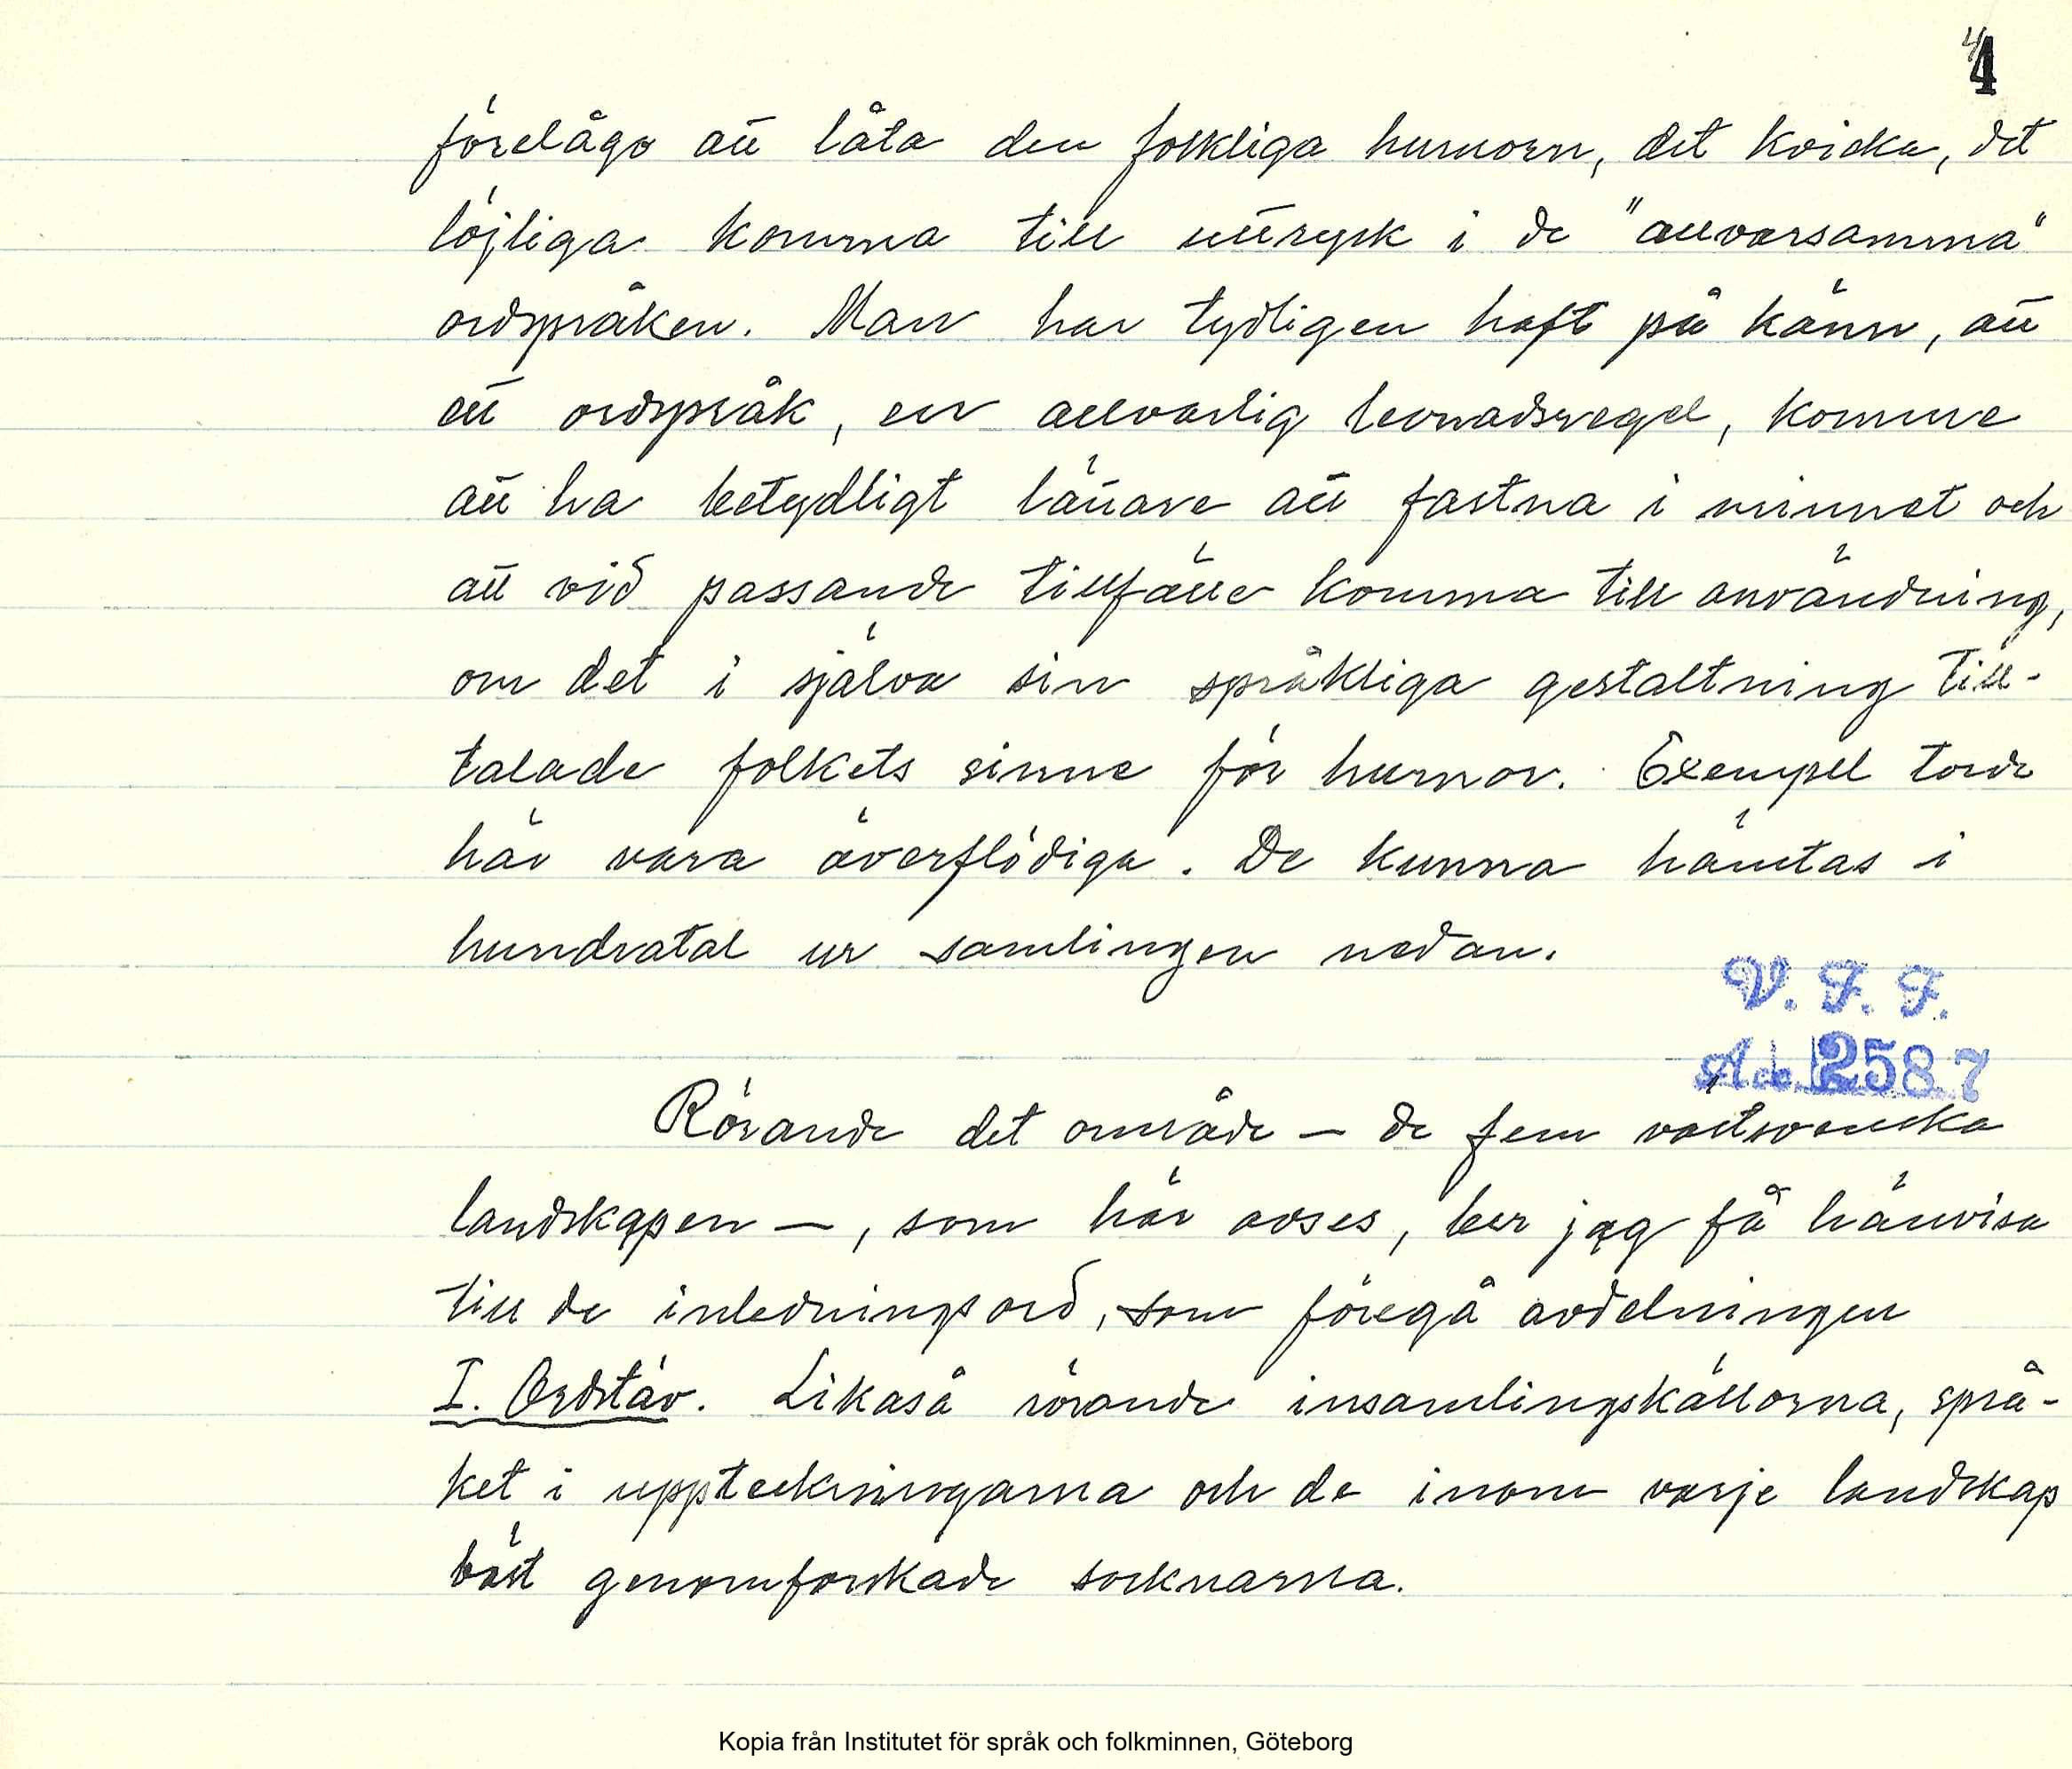 4
4
förelåge att låta den folkliga humorn, det kvicka, det
löjliga komma till uttryck i de "allvarsamma"
ordspråken. Man har tydligen haft på känn, att
ett ordspråk, en allvarlig levnadsregel, komme
att ha betydligt lättare att fastna i minnet och
att vid passande tillfälle komma till användning,
om det i själva sin språkliga gestaltning till-
talade folkets sinne för humor. Exempel torde
här vara överflödiga. De kunna hämtas i
hundratal ur samlingen nedan.
V. F. F.
Acc. 2587
Rörande det område – de fem västsvenska
landskapen –, som här avses, ber jag få hänvisa
till de inledningsord, som föregå avdelningen
I. Ordstäv. Likaså rörande insamlingskällorna, språ-
ket i uppteckningarna och de inom varje landskap
bäst genomforskade socknarna.
Kopia från Institutet för språk och folkminnen, Göteborg